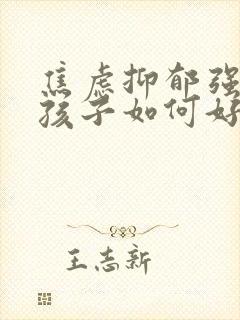 焦虑抑郁强
孩子如何好
王志新